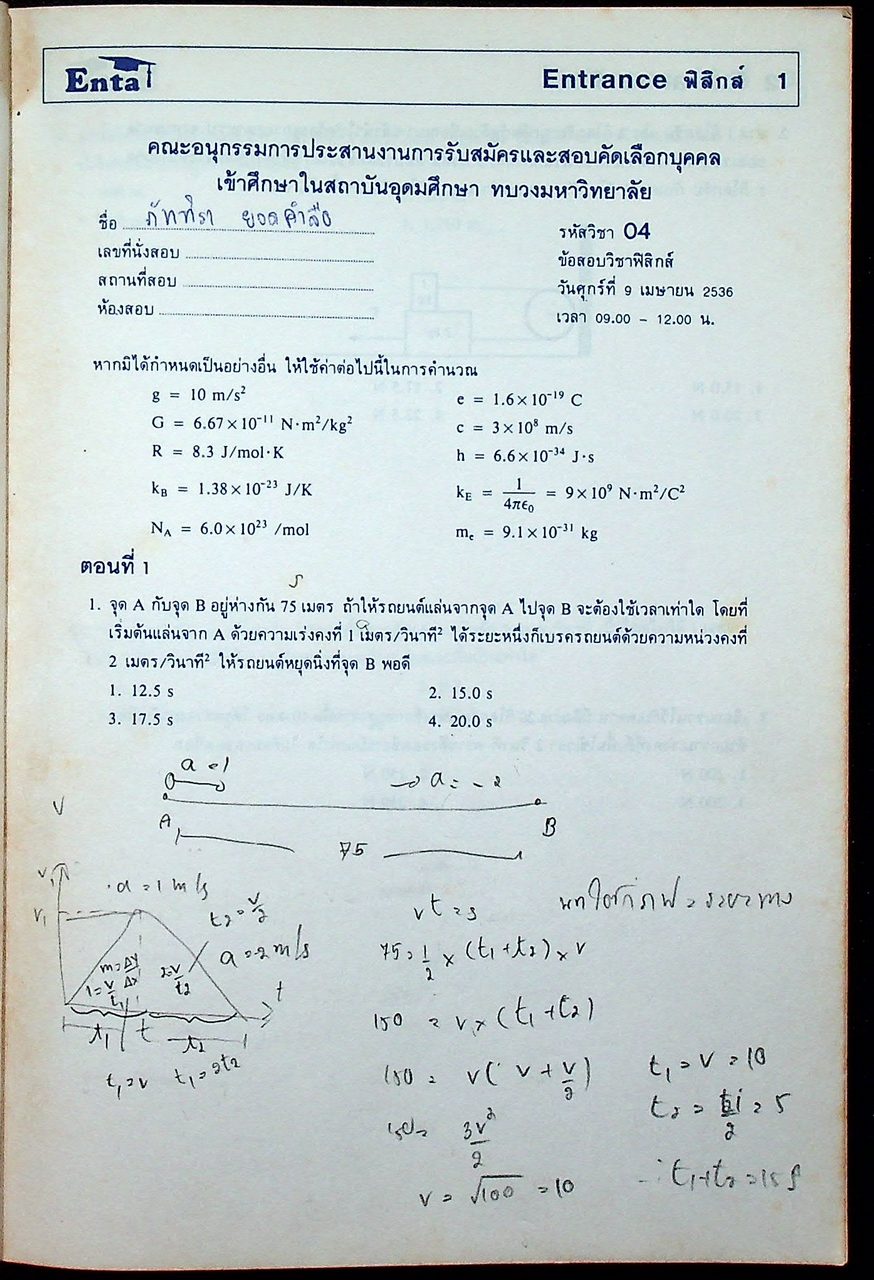 Enta
Entrance ฟิสิกส์ 1
คณะอนุกรรมการประสานงานการรับสมัครและสอบคัดเลือกบุคคล
เข้าศึกษาในสถาบันอุดมศึกษา ทบวงมหาวิทยาลัย
ชื่อ ภัททิรา ยอดคำลือ
รหัสวิชา 04
เลขที่นั่งสอบ
ข้อสอบวิชาฟิสิกส์
สถานที่สอบ
วันศุกร์ที่ 9 เมษายน 2536
ห้องสอบ
เวลา 09.00 – 12.00 น.
หากมิได้กำหนดเป็นอย่างอื่น ให้ใช้ค่าต่อไปนี้ในการคำนวณ
g = 10 m/s²
e = 1.6×10⁻¹⁹ C
G = 6.67×10⁻¹¹ N·m²/kg²
c = 3×10⁸ m/s
R = 8.3 J/mol·K
h = 6.6×10⁻³⁴ J·s
k_B = 1.38×10⁻²³ J/K
k_E = 1/4πε₀ = 9×10⁹ N·m²/C²
N_A = 6.0×10²³ /mol
m_e = 9.1×10⁻³¹ kg
ตอนที่ 1
s
1. จุด A กับจุด B อยู่ห่างกัน 75 เมตร ถ้าให้รถยนต์แล่นจากจุด A ไปจุด B จะต้องใช้เวลาเท่าใด โดยที่
a
เริ่มต้นแล่นจาก A ด้วยความเร่งคงที่ 1 เมตร/วินาที² ได้ระยะหนึ่งก็เบรครถยนต์ด้วยความหน่วงคงที่
2 เมตร/วินาที² ให้รถยนต์หยุดนิ่งที่จุด B พอดี
1. 12.5 s
2. 15.0 s
3. 17.5 s
4. 20.0 s
a = 1
a = -2
V
A
B
75
v₁
a = 1 m/s
v₁
t₂ = v/2
a = -2 m/s
m = Δy/Δx
1 = v/t₁
2 = v/t₂
t
t₁ t t₂
t₁ = v t₁ = 2t₂
vt = s
พท ใต้กราฟ = ระยะทาง
75 = 1/2 × (t₁+t₂) × v
150 = v × (t₁+t₂)
150 = v( v + v/2 )
t₁ = v = 10
150 = 3v²/2
v = √100 = 10
∴ t₁+t₂ = 15 s